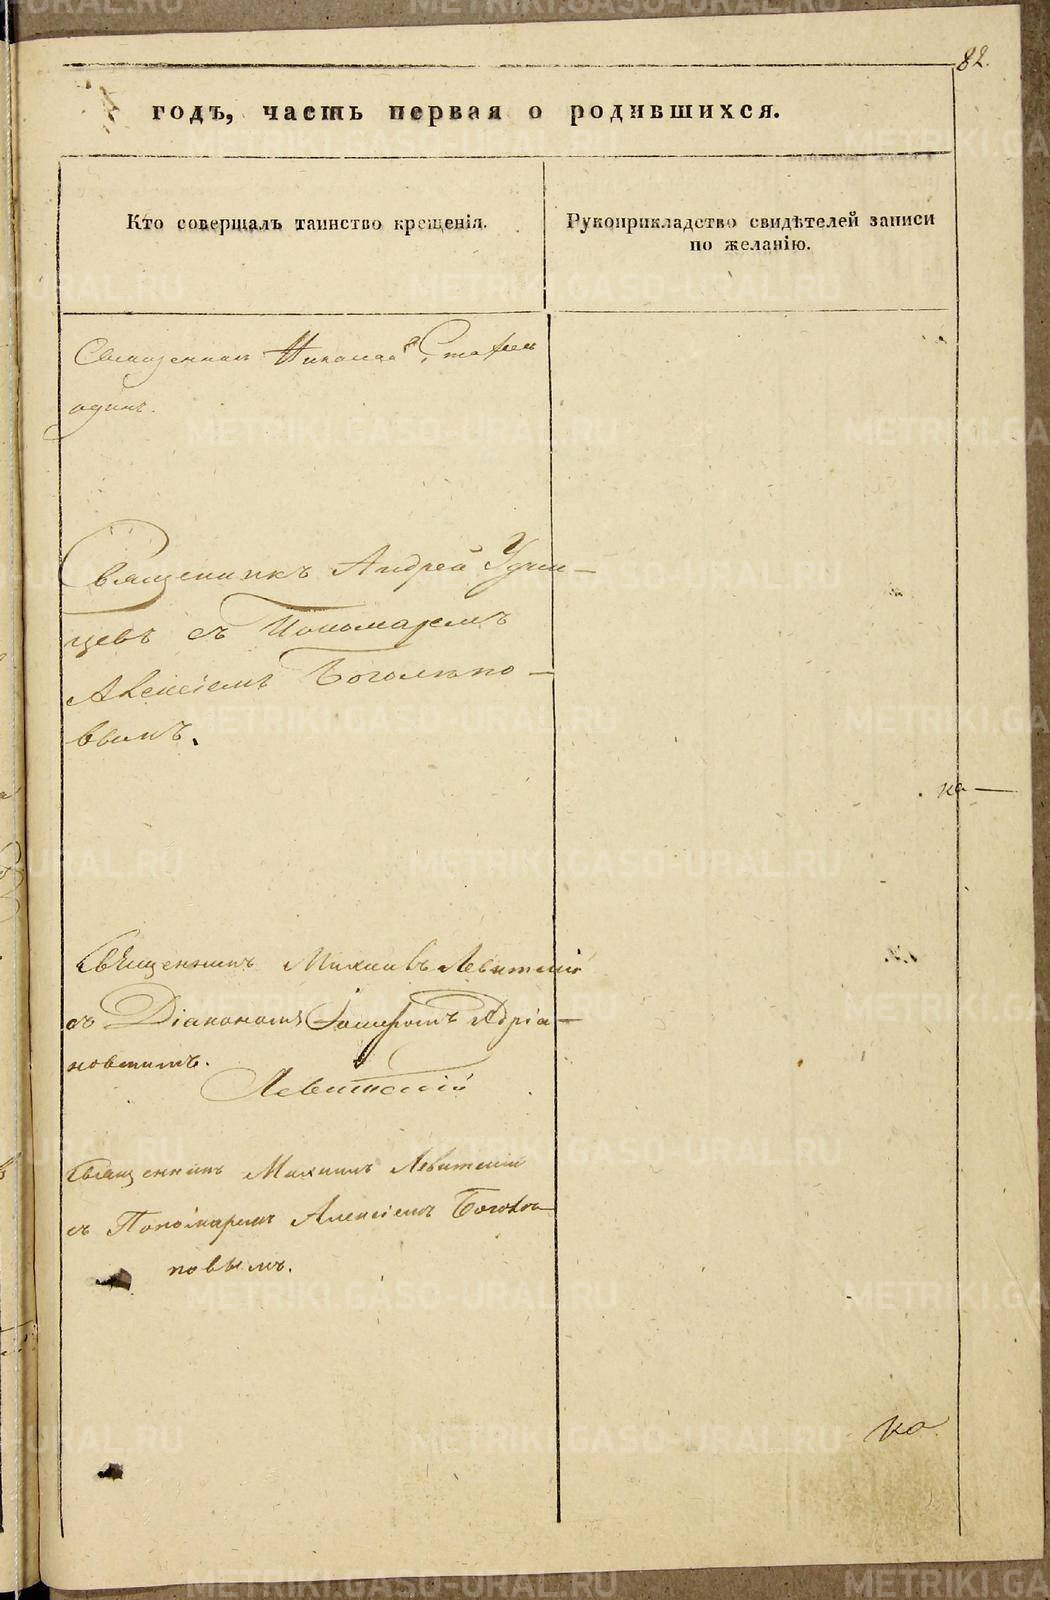 82.
годъ, часть первая о родившихся.
Кто совершалъ таинство крещенія.
Рукоприкладство свидѣтелей записи
по желанію.
Священникъ Николай
одинъ.
Священникъ Андрей Удин-
цевъ съ Пономаремъ
Алексіемъ Боголѣпо-
вымъ.
ка
Священникъ Михаилъ Левитскій
съ Діакономъ Адріа-
новскимъ.
Левитскій
Священникъ Михаилъ Левитскій
съ Пономаремъ Алексіемъ Боголѣ-
повымъ.
ка
METRIKI.GASO-URAL.RU